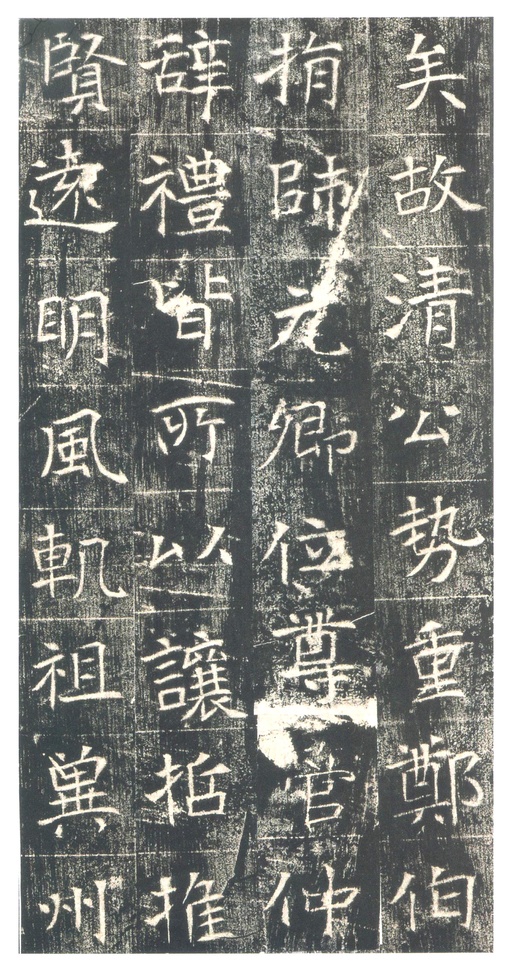 矣故清公勢重鄭伯
捐師元卿位尊管仲
辞禮皆所以讓哲推
賢遠明風軌祖冀州